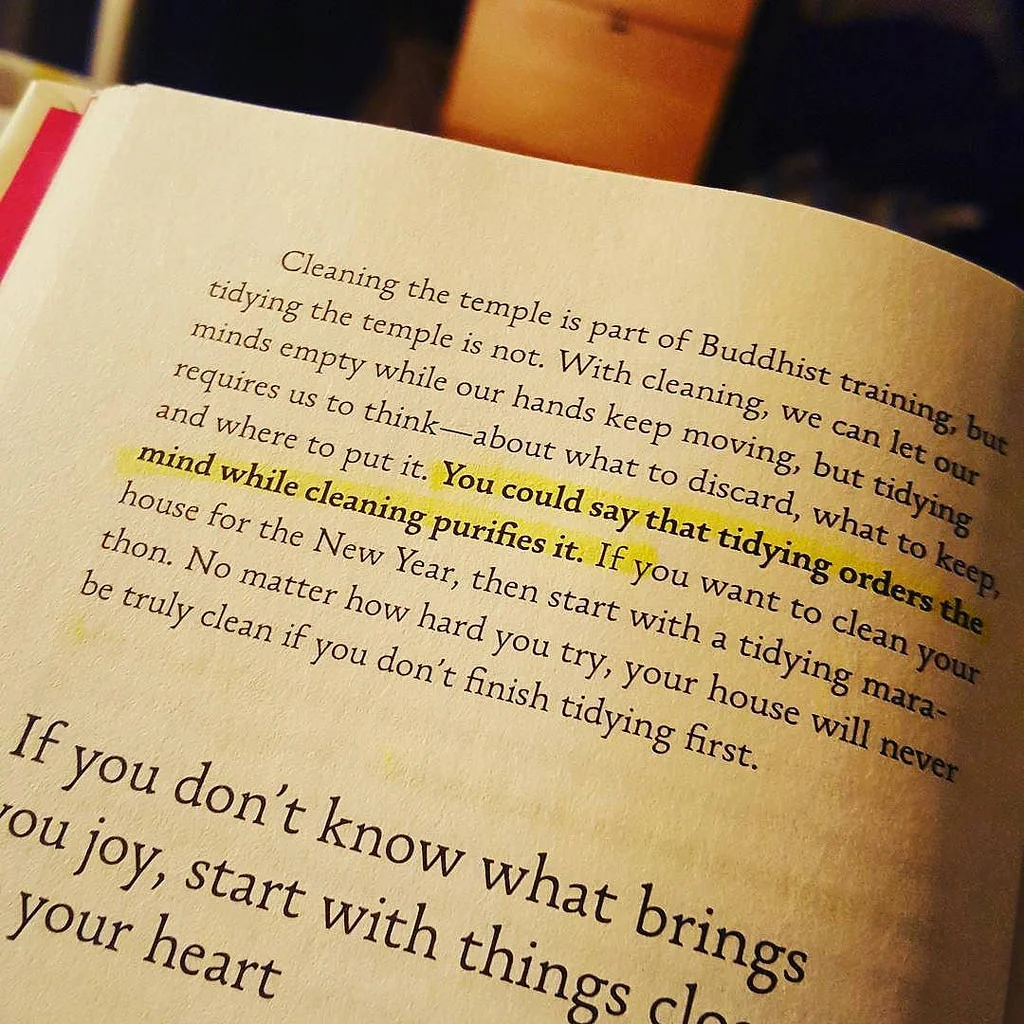 Cleaning the temple is part of Buddhist training, but
tidying the temple is not. With cleaning, we can let our
minds empty while our hands keep moving, but tidying
requires us to think—about what to discard, what to keep,
and where to put it. You could say that tidying orders the
mind while cleaning purifies it. If you want to clean your
house for the New Year, then start with a tidying mara-
thon. No matter how hard you try, your house will never
be truly clean if you don't finish tidying first.
If you don't know what brings
you joy, start with things
your heart